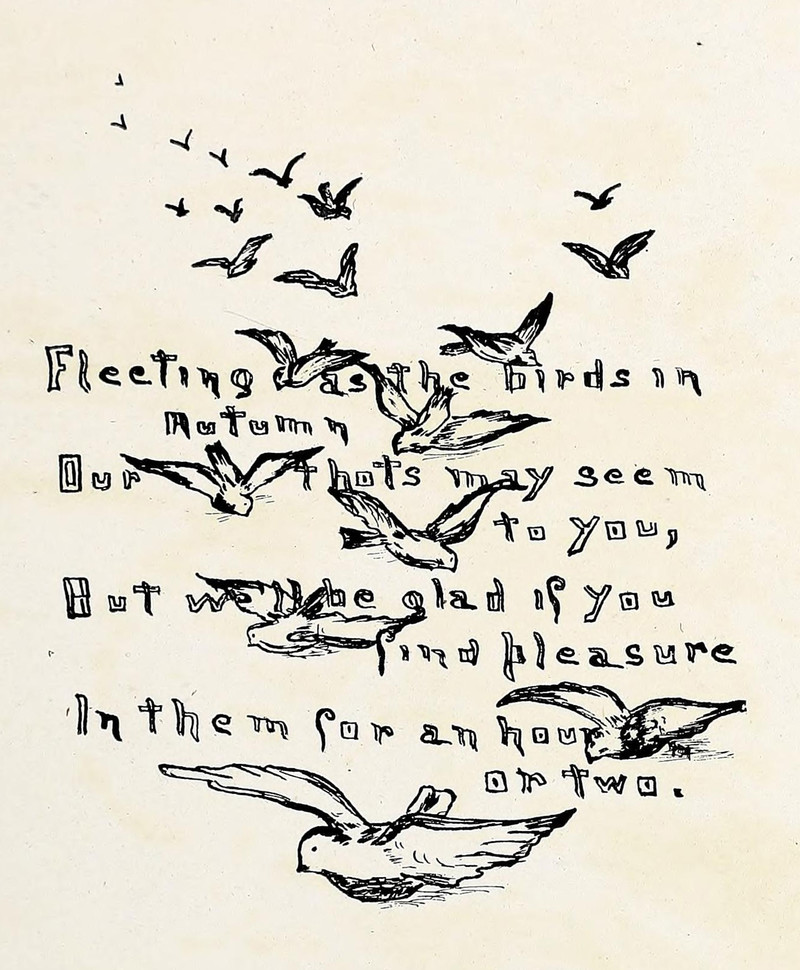 Fleeting as the birds in
Autumn
Our thots may seem
to you,
But we'll be glad if you
find pleasure
In them for an hour
or two.